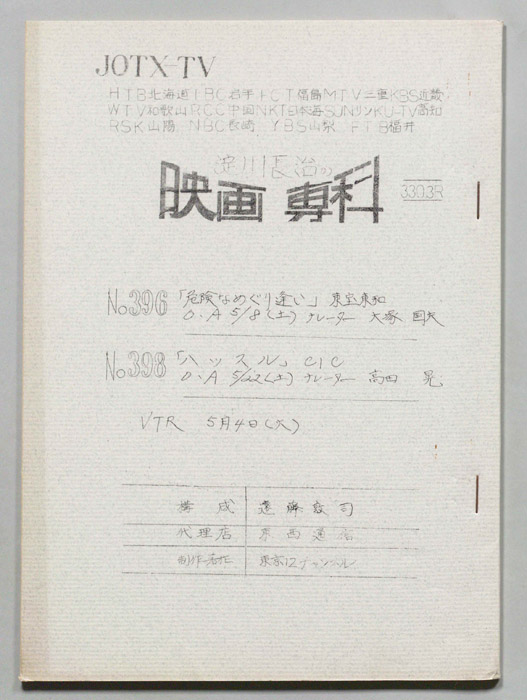 JOTX-TV
HTB北海道 IBC岩手 FCT福島 MTV三重 KBS近畿
WTV和歌山 RCC中国 NKT日本海 SUNサン KUTV高知
RSK山陽 NBC長崎 YBS山梨 FTB福井
淀川長治の
映画 専科
3303R
No396 「危険なめぐり逢い」 東宝東和
O.A 5/8(土) ナレーター 大塚 国夫
No398 「ハッスル」 CIC
O.A 5/22(土) ナレーター 高田 晃
VTR 5月4日(火)
構成 遠藤 司
代理店 東西通信
制作著作 東京12チャンネル